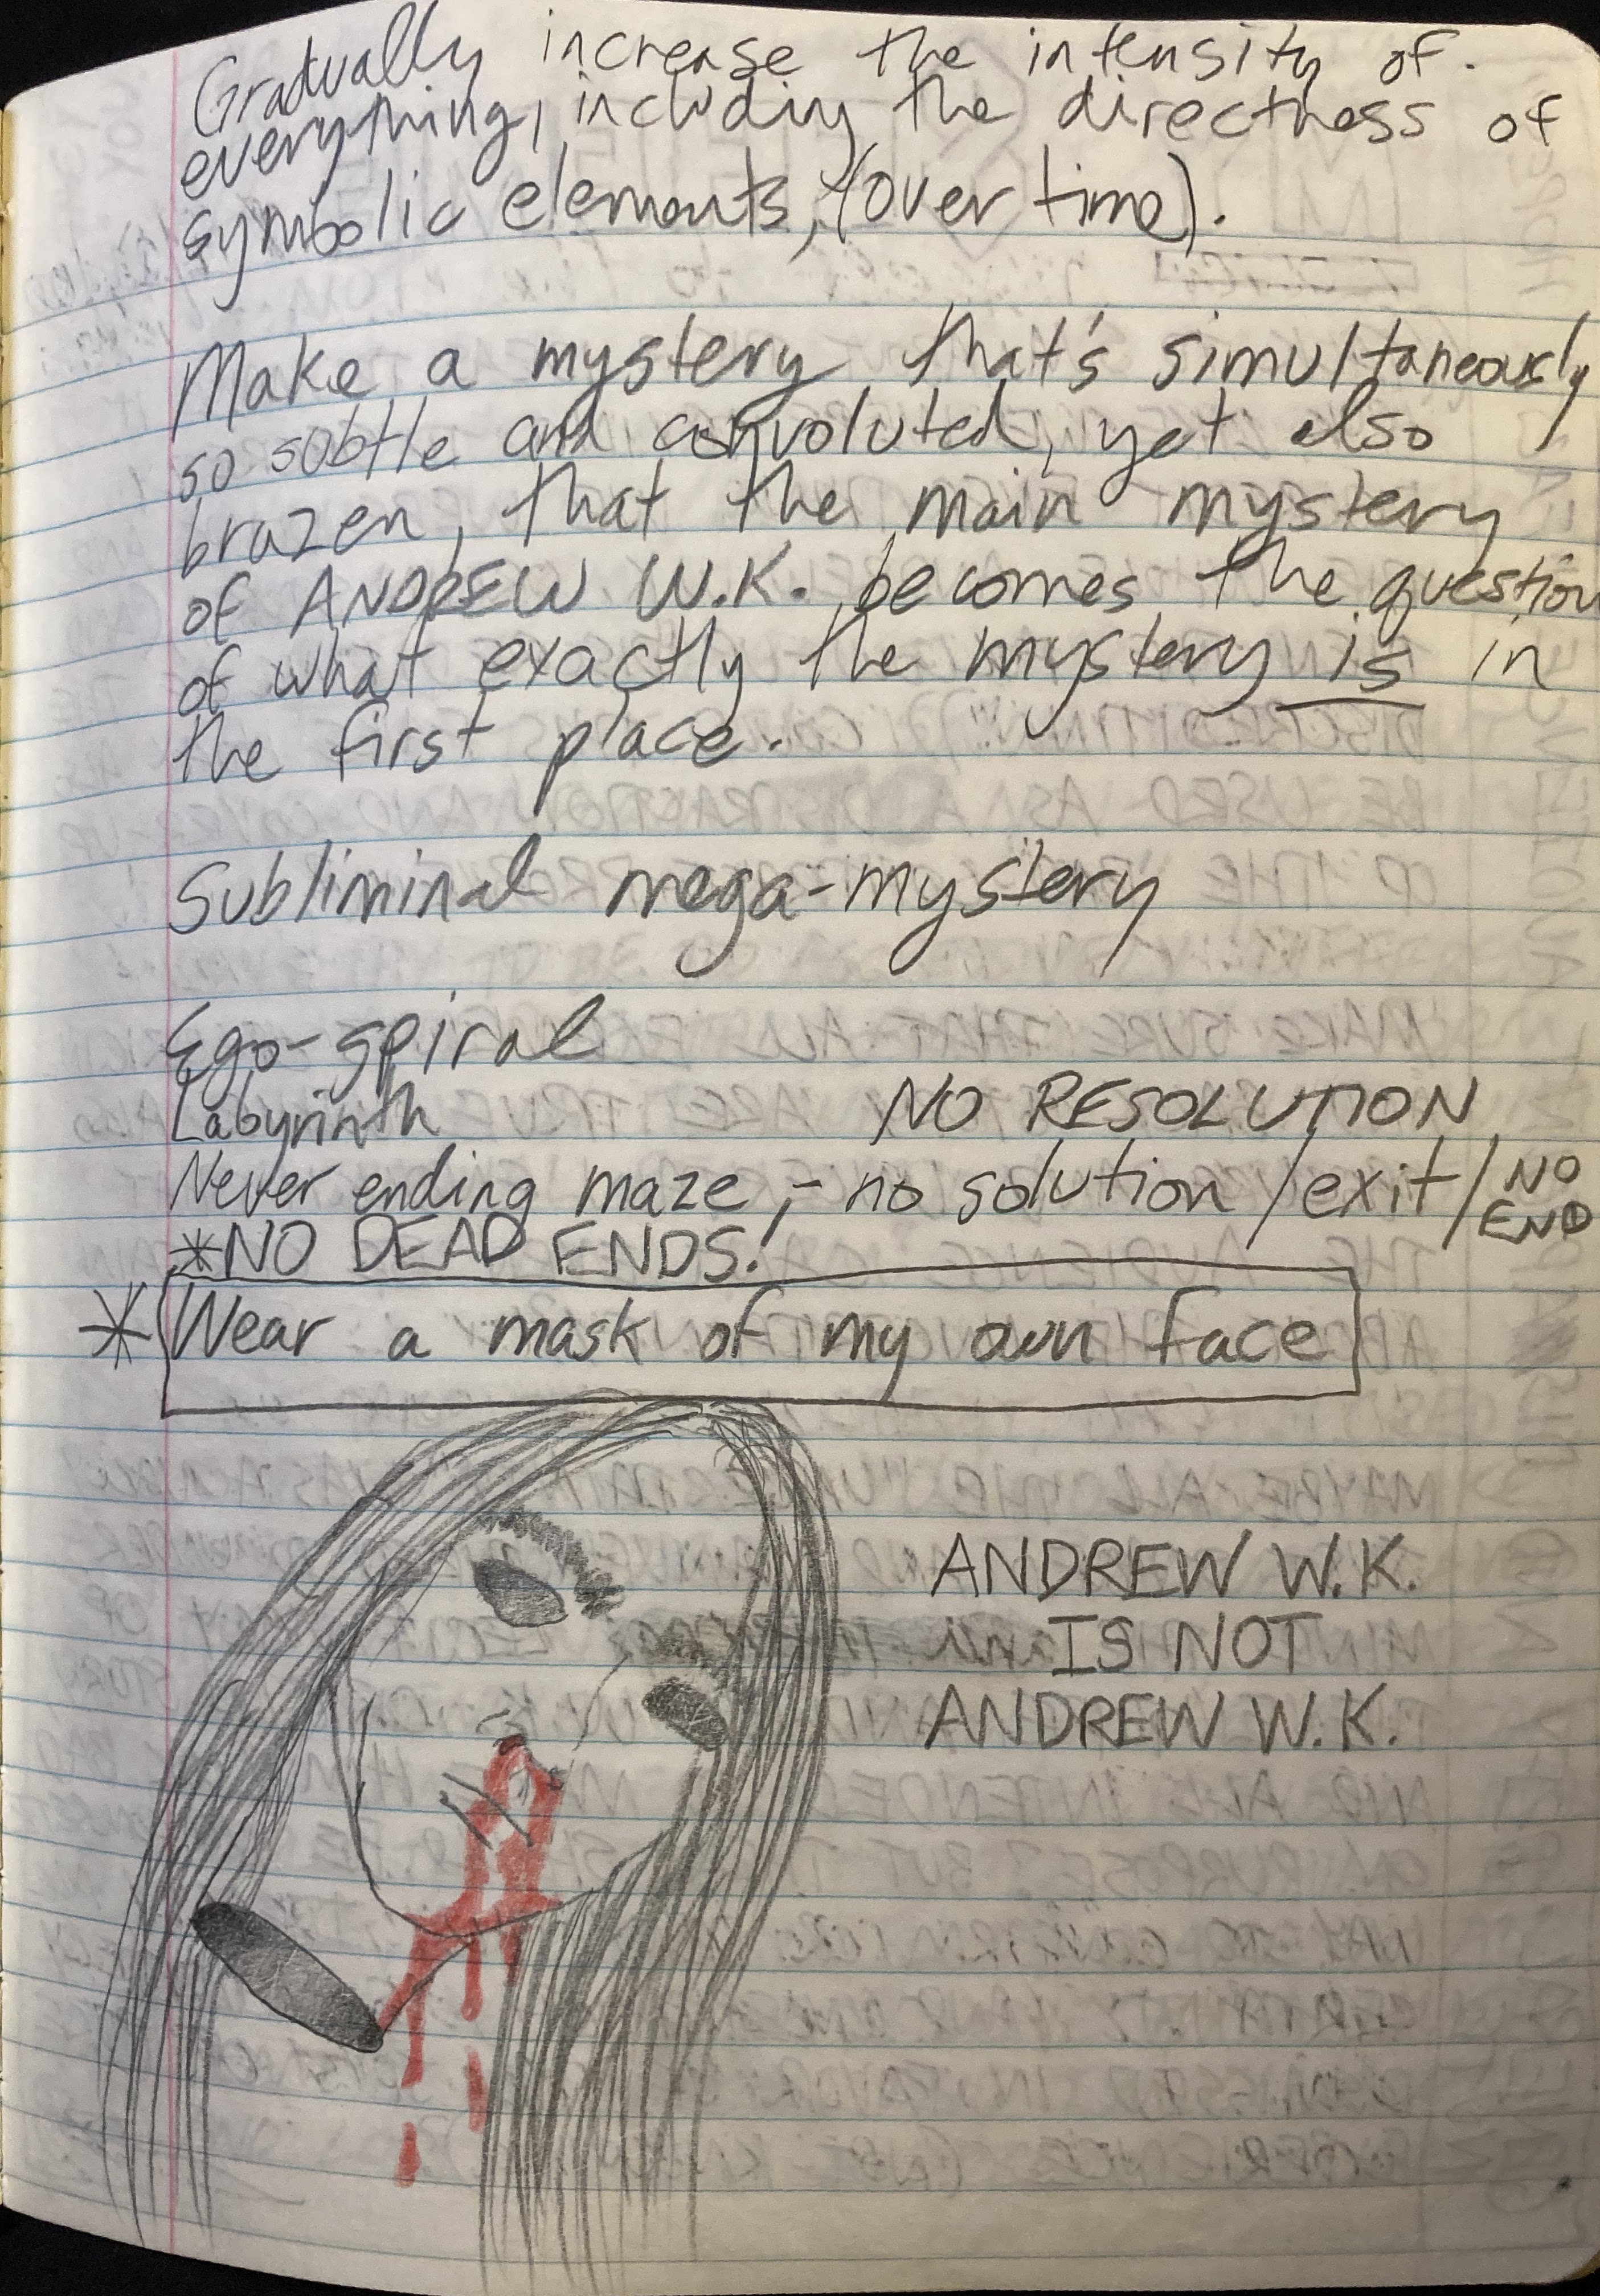 Gradually increase the intensity of.
everything, including the directness of
symbolic elements, (over time).
Make a mystery that's simultaneously
so subtle and convoluted, yet also
brazen, that the main mystery
of ANDREW W.K. becomes the question
of what exactly the mystery is in
the first place.
Subliminal mega-mystery
Ego-spiral
Labyrinth NO RESOLUTION
Never ending maze, - no solution /exit/ NO END
*NO DEAD ENDS!
* Wear a mask of my own face
ANDREW W.K.
IS NOT
ANDREW W.K.